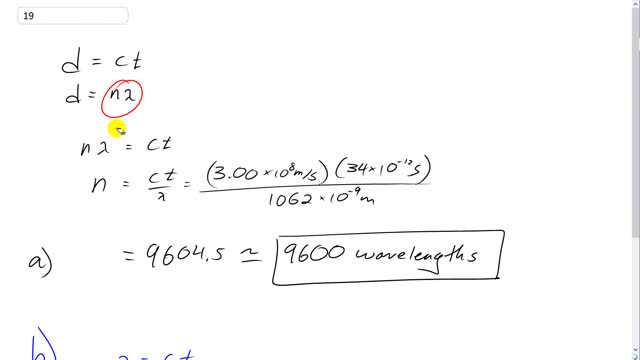 19
d = ct
d = nλ
nλ = ct
n = ct/λ = (3.00 × 10⁸ m/s)(34 × 10⁻¹² s)/1062 × 10⁻⁹ m
a) = 9604.5 ≃ 9600 wavelengths
b) λ = ct